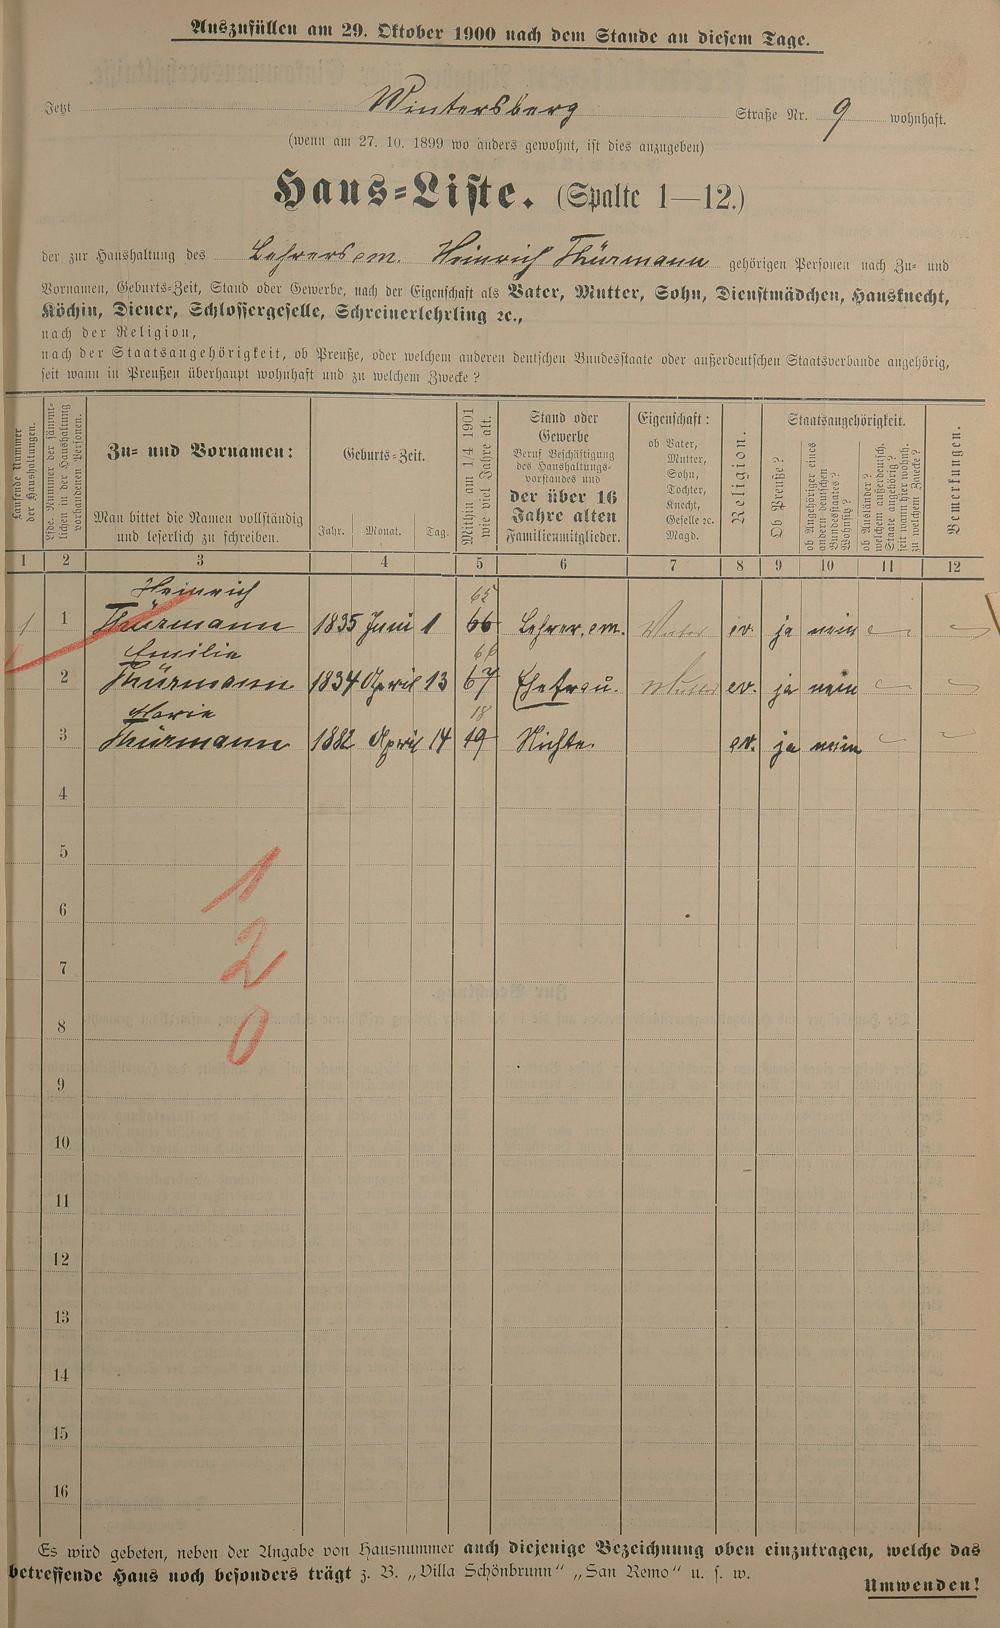 Auszufüllen am 29. Oktober 1900 nach dem Stande an diesem Tage.
Jetzt Wintersberg Straße Nr. 9 wohnhaft.
(wenn am 27. 10. 1899 wo anders gewohnt, ist dies anzugeben)
Haus-Liste. (Spalte 1—12.)
der zur Haushaltung des Lehrers em. Heinrich Thürmann gehörigen Personen nach Zu- und
Vornamen, Geburts-Zeit, Stand oder Gewerbe, nach der Eigenschaft als Vater, Mutter, Sohn, Dienstmädchen, Hausknecht,
Köchin, Diener, Schlossergeselle, Schreinerlehrling ꝛc.,
nach der Religion,
nach der Staatsangehörigkeit, ob Preuße, oder welchem anderen deutschen Bundesstaate oder außerdeutschen Staatsverbande angehörig,
seit wann in Preußen überhaupt wohnhaft und zu welchem Zwecke?
Laufende Nummer
der Haushaltungen.
Lfde. Nummer der sämmt-
lichen in der Haushaltung
vorhandenen Personen.
Zu- und Vornamen:
Man bittet die Namen vollständig
und leserlich zu schreiben.
Geburts-Zeit.
Jahr. Monat. Tag.
Mithin am 1/4 1901
wie viel Jahre alt.
Stand oder
Gewerbe
Beruf Beschäftigung
des Haushaltungs-
vorstandes und
der über 16
Jahre alten
Familienmitglieder.
Eigenschaft:
ob Vater,
Mutter,
Sohn,
Tochter,
Knecht,
Geselle ꝛc.
Magd.
Religion.
Staatsangehörigkeit.
Ob Preuße?
ob Angehöriger eines
andern deutschen
Bundesstaates?
Wohnsitz?
ob Ausländer?
welchem außerdeutsch.
Staate angehörig?
seit wann hier wohnh.
zu welchem Zwecke?
Bemerkungen.
1 2 3 4 5 6 7 8 9 10 11 12
Heinrich 65
1 1 Thürmann 1835 Juni 1 66 Lehrer, em. Vater ev. ja nein
Emilie
2 Thürmann 1834 April 13 67 Ehefrau. Mutter ev. ja nein
Marie 18
3 Thürmann 1882 April 14 19 Nichte. ev. ja nein
4
5
1
6
2
7
0
8
9
10
11
12
13
14
15
16
Es wird gebeten, neben der Angabe von Hausnummer auch diejenige Bezeichnung oben einzutragen, welche das
betreffende Haus noch besonders trägt z. B. „Villa Schönbrunn“ „San Remo“ u. s. w.
Umwenden!